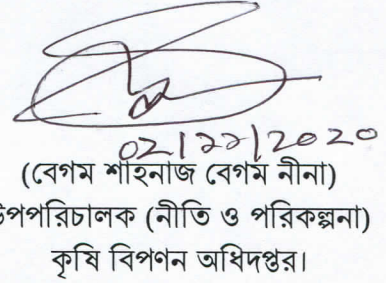 ০২/১১/২০২০
(বেগম শাহনাজ বেগম নীনা)
উপপরিচালক (নীতি ও পরিকল্পনা)
কৃষি বিপণন অধিদপ্তর।